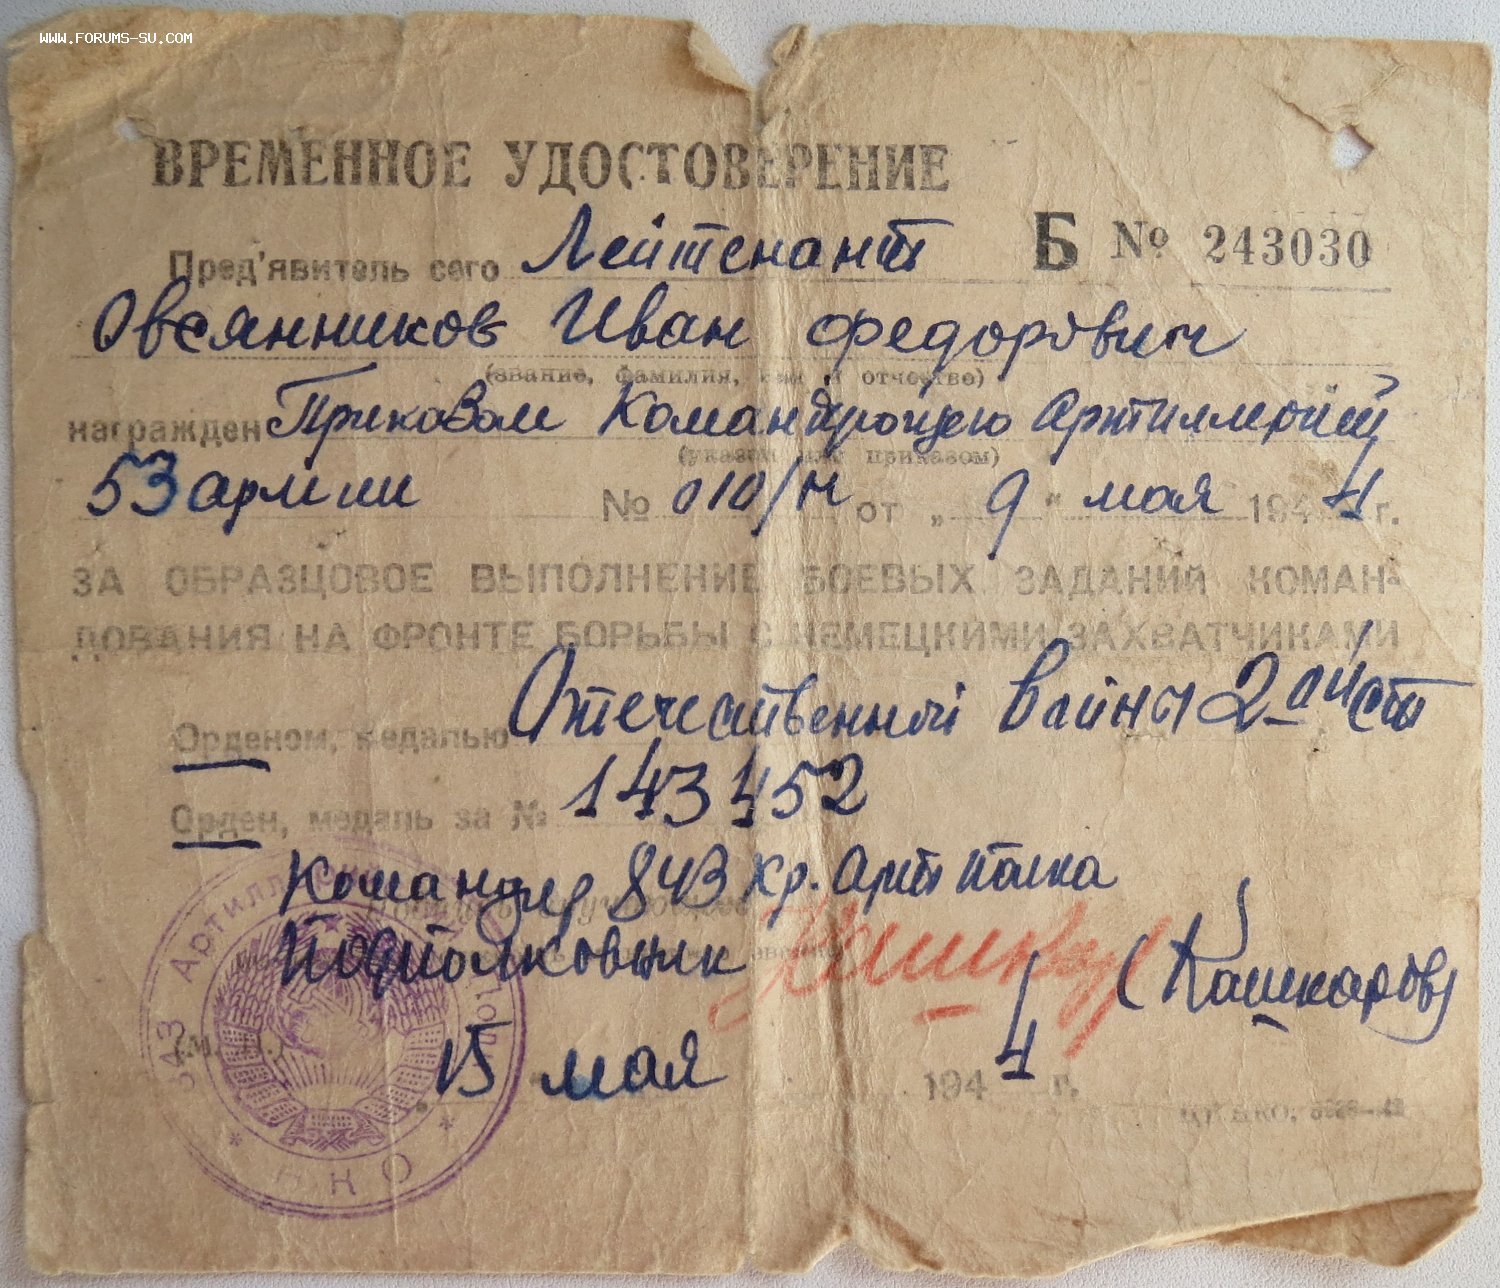 WWW.FORUMS-SU.COM
ВРЕМЕННОЕ УДОСТОВЕРЕНИЕ
Б № 243030
Пред'явитель сего Лейтенант
Овсянников Иван Федорович
(звание, фамилия, имя и отчество)
награжден Приказом Командующего Артиллерией
(указом или приказом)
53 армии № 010/н от „ 9 " мая 1944 г.
ЗА ОБРАЗЦОВОЕ ВЫПОЛНЕНИЕ БОЕВЫХ ЗАДАНИЙ КОМАН-
ДОВАНИЯ НА ФРОНТЕ БОРЬБЫ С НЕМЕЦКИМИ ЗАХВАТЧИКАМИ
Орденом, медалью Отечественной Войны 2-ой ст
Орден, медаль за № 143452
Командир 843 Кр. Арт полка
Подполковник Кашкар (Кашкаров)
(М. П.)
15 мая 1944 г.
Артилл
НКО